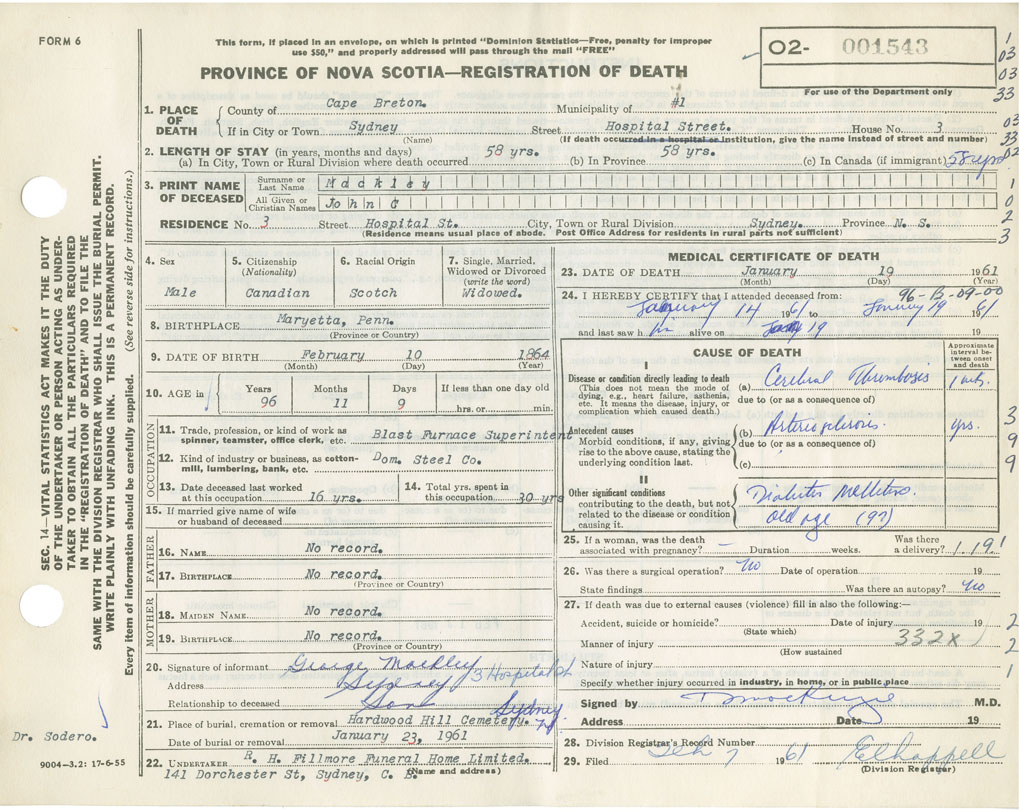 FORM 6
This form, if placed in an envelope, on which is printed "Dominion Statistics—Free, penalty for improper
use $50," and properly addressed will pass through the mail "FREE"
PROVINCE OF NOVA SCOTIA—REGISTRATION OF DEATH
02- 001543
For use of the Department only
1
03
03
33
1. PLACE OF DEATH County of Cape Breton. Municipality of #1
If in City or Town Sydney Street Hospital Street. House No. 3
(Name) (If death occurred in a hospital or institution, give the name instead of street and number)
03
33
02
2. LENGTH OF STAY (in years, months and days)
(a) In City, Town or Rural Division where death occurred 58 yrs. (b) In Province 58 yrs. (c) In Canada (if immigrant) 58 yrs
3. PRINT NAME OF DECEASED
Surname or Last Name Mackley
All Given or Christian Names John G
1
0
2
3
RESIDENCE No. 3 Street Hospital St. City, Town or Rural Division Sydney. Province N. S.
(Residence means usual place of abode. Post Office Address for residents in rural parts not sufficient)
4. Sex
Male
5. Citizenship
(Nationality)
Canadian
6. Racial Origin
Scotch
7. Single, Married, Widowed or Divorced
(write the word)
Widowed.
8. BIRTHPLACE Maryetta, Penn.
(Province or Country)
9. DATE OF BIRTH February 10 1864
(Month) (Day) (Year)
10. AGE in
Years 96
Months 11
Days 9
If less than one day old
hrs. or min.
OCCUPATION
11. Trade, profession, or kind of work as spinner, teamster, office clerk, etc. Blast Furnace Superintent
12. Kind of industry or business, as cotton-mill, lumbering, bank, etc. Dom. Steel Co.
13. Date deceased last worked at this occupation 16 yrs.
14. Total yrs. spent in this occupation 30 yrs
15. If married give name of wife or husband of deceased
FATHER
16. NAME No record.
17. BIRTHPLACE No record.
(Province or Country)
MOTHER
18. MAIDEN NAME No record.
19. BIRTHPLACE No record.
(Province or Country)
20. Signature of informant George Mackley
Address Sydney 3 Hospital St
Relationship to deceased Son Sydney
21. Place of burial, cremation or removal Hardwood Hill Cemetery.
Date of burial or removal January 23, 1961
22. UNDERTAKER R. H. Fillmore Funeral Home Limited.
141 Dorchester St, Sydney, C. B.
(Name and address)
MEDICAL CERTIFICATE OF DEATH
23. DATE OF DEATH January 19 1961
(Month) (Day) (Year)
24. I HEREBY CERTIFY that I attended deceased from: 96-B-09-00
January 14 1961 to January 19 1961
and last saw h im alive on Jan 19 19
CAUSE OF DEATH
Approximate interval between onset and death
I
Disease or condition directly leading to death
(This does not mean the mode of dying, e.g., heart failure, asthenia, etc. It means the disease, injury, or complication which caused death.)
(a) Cerebral Thrombosis 1 wk.
due to (or as a consequence of)
Antecedent causes
Morbid conditions, if any, giving rise to the above cause, stating the underlying condition last.
(b) Arteriosclerosis yrs.
due to (or as a consequence of)
(c)
II
Other significant conditions
contributing to the death, but not related to the disease or condition causing it.
Diabetes Mellitus.
Old age (97)
3
9
9
25. If a woman, was the death associated with pregnancy? — Duration weeks. Was there a delivery?
26. Was there a surgical operation? No Date of operation 19
State findings Was there an autopsy? No
27. If death was due to external causes (violence) fill in also the following:—
Accident, suicide or homicide? Date of injury 19
(State which)
Manner of injury 332x
(How sustained
Nature of injury
Specify whether injury occurred in industry, in home, or in public place
2
2
1
Signed by M.D.
Address Date 19
28. Division Registrar's Record Number
29. Filed Feb 7 1961 E Chappell
(Division Registrar)
SEC. 14—VITAL STATISTICS ACT MAKES IT THE DUTY
OF THE UNDERTAKER OR PERSON ACTING AS UNDER-
TAKER TO OBTAIN ALL THE PARTICULARS REQUIRED
IN THE "REGISTRATION OF DEATH" AND TO FILE THE
SAME WITH THE DIVISION REGISTRAR WHO SHALL ISSUE THE BURIAL PERMIT.
WRITE PLAINLY WITH UNFADING INK. THIS IS A PERMANENT RECORD.
Every item of information should be carefully supplied. (See reverse side for instructions.)
Dr. Sodero.
9004-3.2: 17-6-55